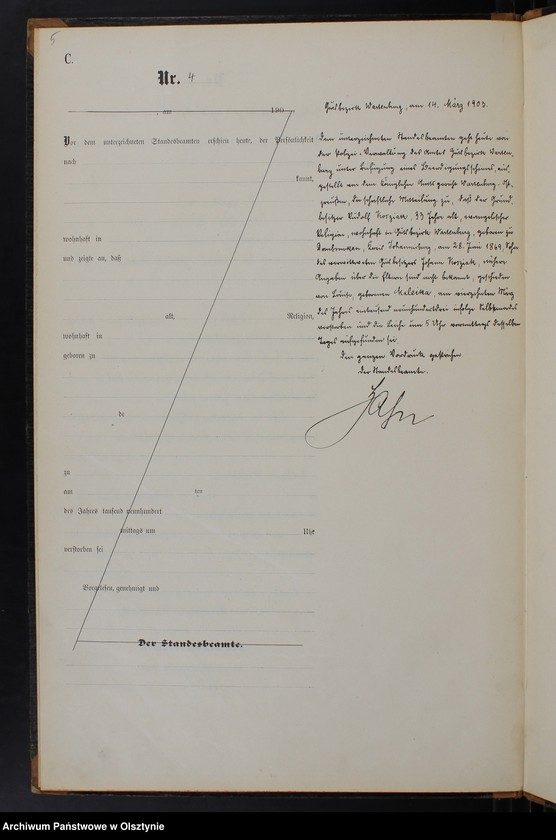 5
C.
Nr. 4
am 190
Gutsbezirk Wartenburg, am 14. März 1903.
Vor dem unterzeichneten Standesbeamten erschien heute, der Persönlichkeit
nach
kannt,
wohnhaft in
und zeigte an, daß
alt, Religion,
wohnhaft in
geboren zu
de
zu
am ten
des Jahres tausend neunhundert
mittags um Uhr
verstorben sei
Vorgelesen, genehmigt und
Der Standesbeamte.
Dem unterzeichneten Standesbeamten geht heute von
der Polizei-Verwaltung des Amtes Gutsbezirk Warten-
burg unter Beifügung eines Beerdigungsscheines, aus-
gestellt von dem Königlichen Amtsgericht Wartenburg Ost-
preußen, die schriftliche Mitteilung zu, daß der Grund-
besitzer Rudolf Kosziak, 33 Jahre alt, evangelischer
Religion, wohnhaft in Gutsbezirk Wartenburg, geboren zu
Dombrowken, Kreis Johannisburg, am 28. Juni 1869, Sohn
des Gutsbesitzers Johann Kosziak, nähere
Angaben über die Eltern sind nicht bekannt, geschieden
von geborenen Maleika, am vierzehnten März
des Jahres eintausend neunhundertdrei infolge Selbstmordes
verstorben und die Leiche um 5 Uhr vormittags desselben
Tages aufgefunden sei.
Den ganzen Vordruck gestrichen.
Der Standesbeamte.
Jahn
Archiwum Państwowe w Olsztynie